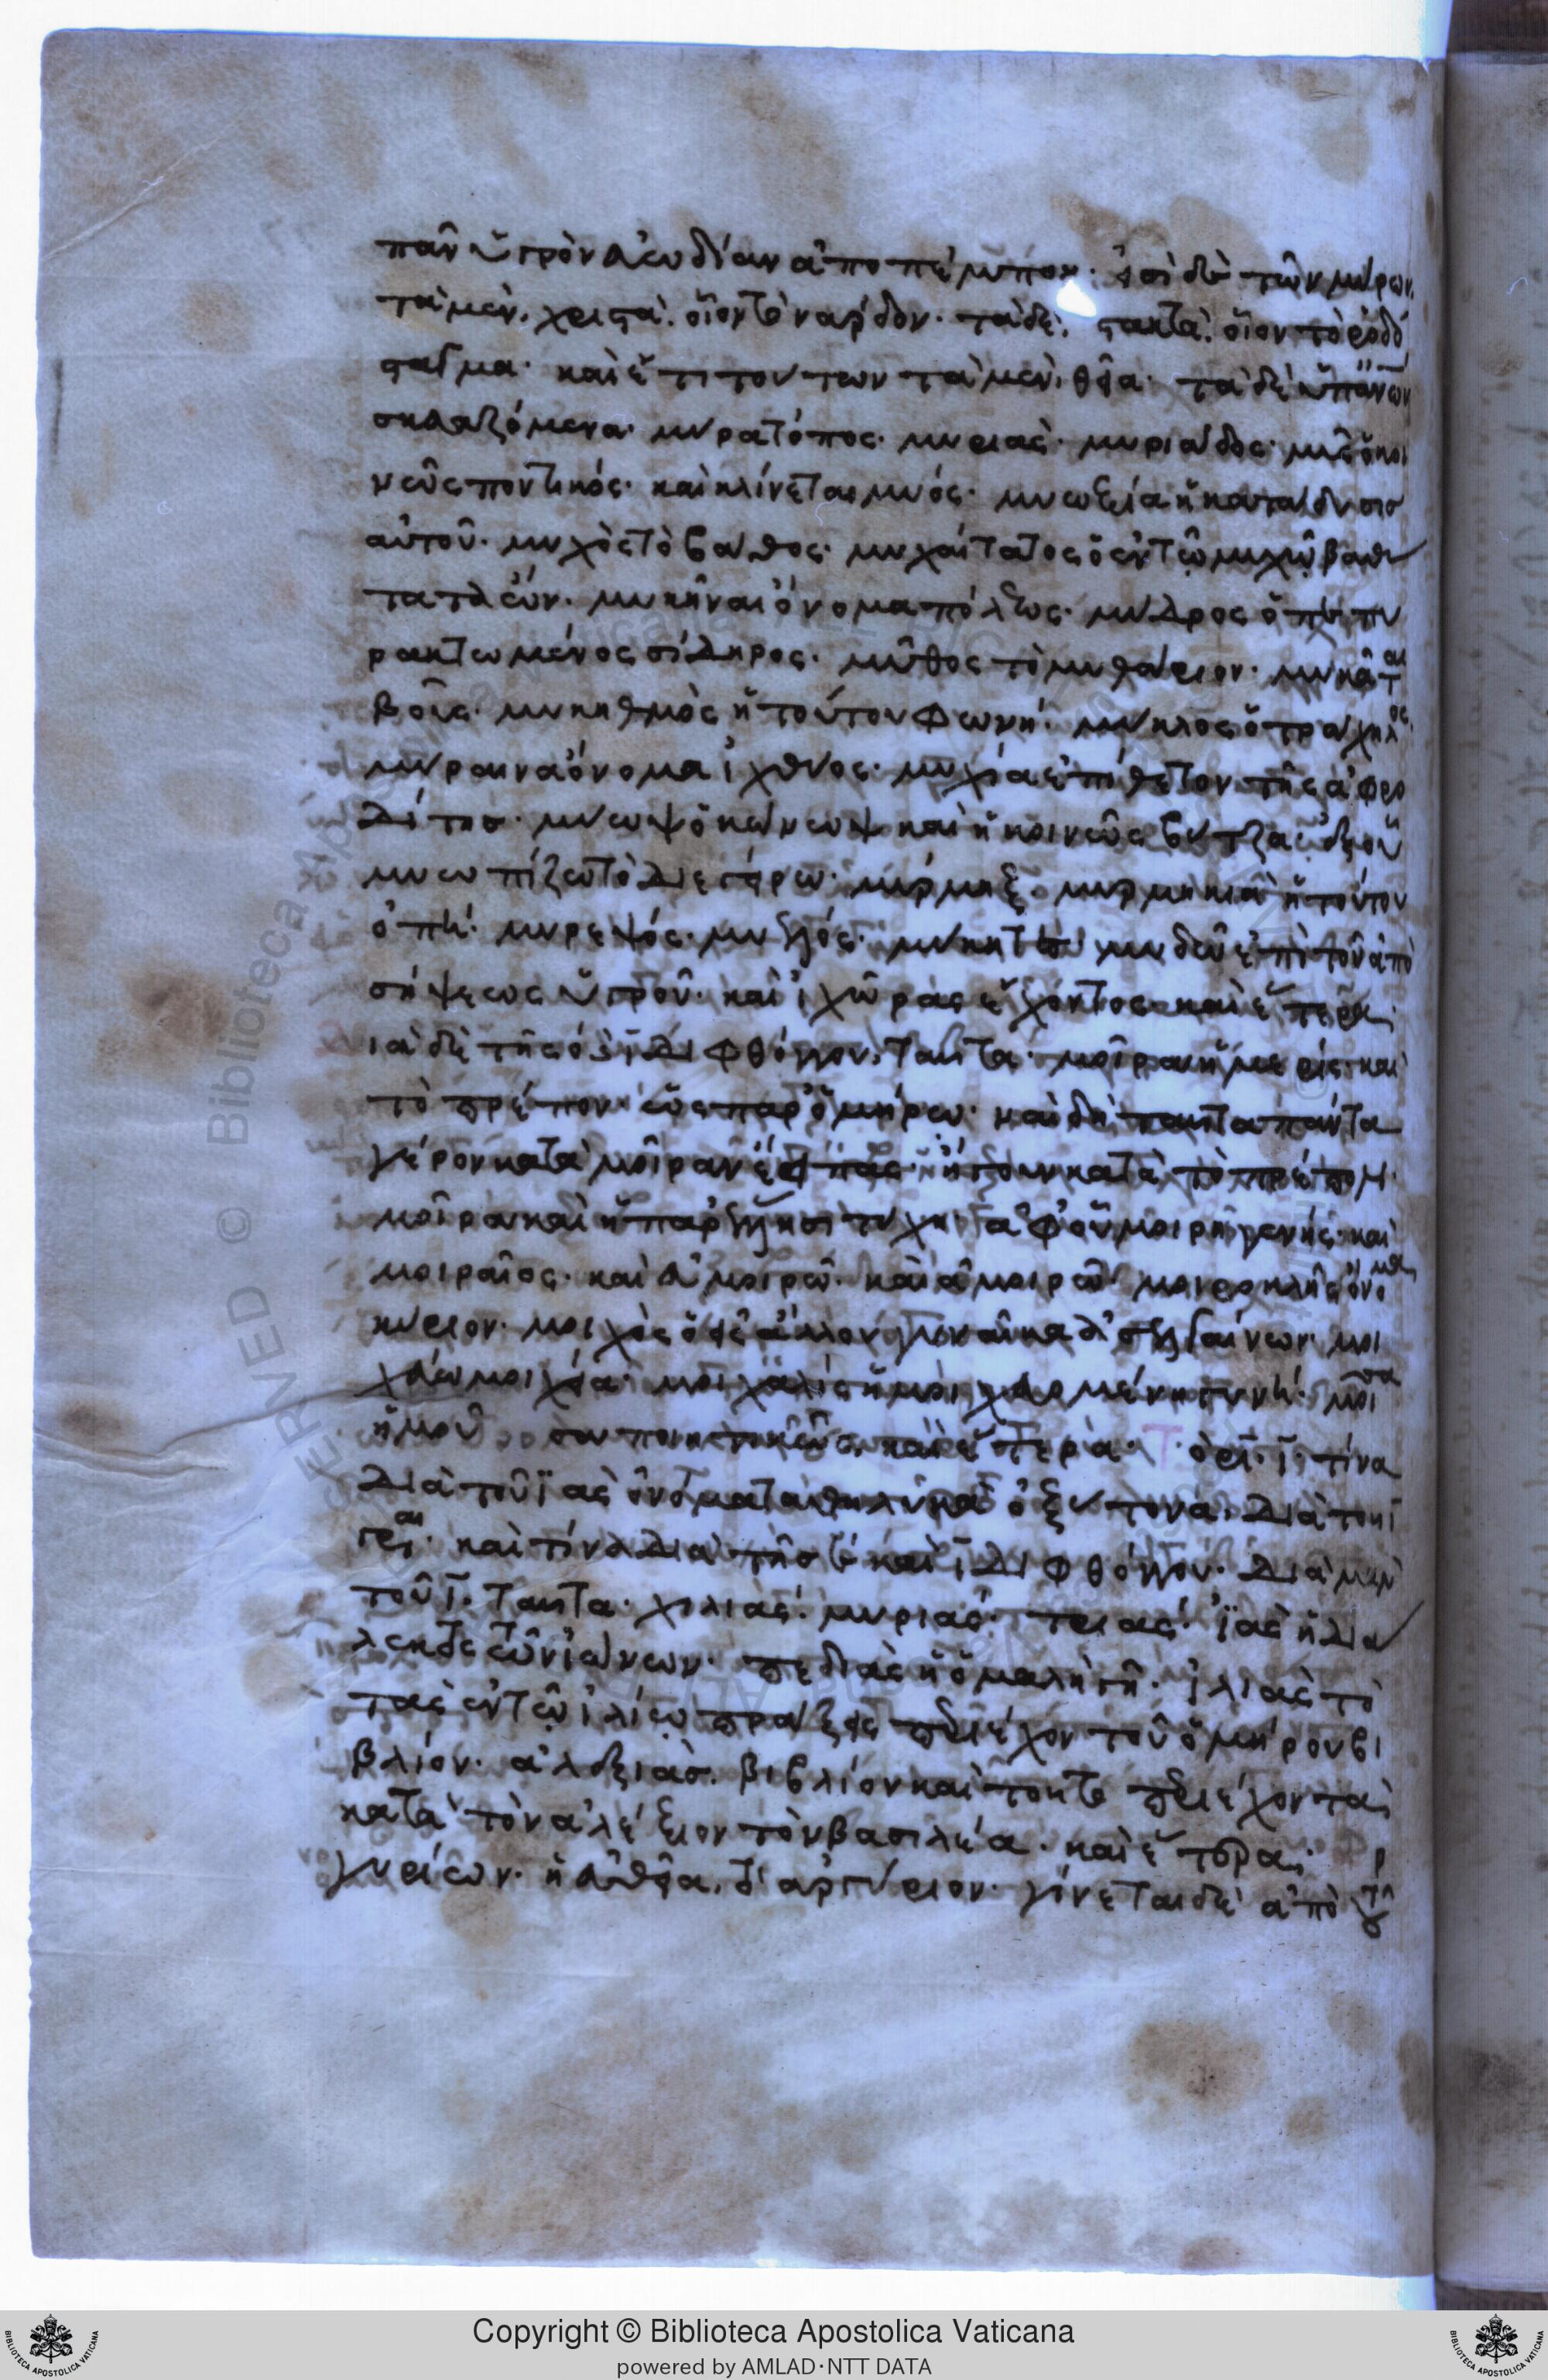 πᾶν ὑγρὸν εὐωδίαν ἀποπέμπον· εἰσὶ δὲ τῶν μύρων
τὰ μὲν, χριστά. οἷον τὲ νάρδον· τὰ δὲ, στακτά. οἷον τὸ ῥοδό
σταγμα· καὶ ἔτι τούτων τὰ μὲν, θεῖα· τὰ δὲ
σκευαζόμενα· μυριὰς· μυριάδος· μῦς ὁ κοι
νῶς ποντικός· καὶ κλίνεται μυός· μυωξία ἡ κατάδυσις
αὐτοῦ· μυχὸς τὸ βάθος· μυχαίτατος ὁ ἐν τῷ μυχῷ βαθυ
τάτῳ ὤν· μυκῆναι ὄνομα πόλεως· μύδρος ὁ πε πυ
ρακτωμένος σίδηρος· μῦθος τὸ μυθάριον· μυκᾶται
βοῦς· μυκηθμὸς ἡ τούτου φωνή· μύκλος ὁ τράχηλος
μύραινα ὄνομα ἰχθύος· μυχία ἐπίθετον τῆς ἀφρο
δίτης· μύωψ ὁ κώνωψ καὶ ἡ κοινῶς
μυωπίζω τὸ διεγείρω· μύρμηξ· μυρμηκιὰ ἡ τούτου
ὀπή· μυρεψός· μυελός· μυδῶ ἐπὶ τοῦ ἀπὸ
σήψεως ὑγροῦ· καὶ ἰχῶρας ἔχοντος καὶ ἕτερα·
ιὰ δὲ τῆς ο ι διφθόγγου, ταῦτα· μοῖρα ἡ μερίς· καὶ
τὸ πρέπον· ὡς παρ' ὁμήρῳ· καὶ δὴ ταῦτα πάντα
γέρον κατὰ μοῖραν ἔειπας· ἤγουν κατὰ τὸ πρέπον·
μοῖρα καὶ ἡ παρ' ἕλλησι τύχη· ἀφ' οὗ μοιρηγενής· καὶ
μοιραῖος· καὶ ἀμοιρῶ· καὶ ἀμοιρῶ· μοιροκλῆς ὄνομα
κύριον· μοιχὸς ὁ εἰς ἀλλογυναῖκα εἰσβαίνων· μοι
χεύω μοιχεία· μοιχαλὶς ἡ μοιχευομένη γυνή· μοῖσα
ἡ μοῦσα ποιητικῶς· καὶ ἕτερα· τίνα
διὰ τοῦ ϊας ὀνόματα θηλυκὰ ὀξύτονα, διὰ τοῦ ῖ
γράφεται· καὶ τίνα διὰ τῆς ε καὶ ῖ διφθόγγου· διὰ μὲν
τοῦ ῖ. ταῦτα· χιλιάς· μυριάς· τριάς· ϊὰς ἡ διά
λεκτος τῶν ἰώνων· πεδιὰς ἡ ὁμαλὴ γῆ· ἰλιὰς τὸ
τὰς ἐν τῷ ἰλίῳ πράξεις περιέχον τοῦ ὁμήρου βι
βλίον· ἀλεξιάς. βιβλίον καὶ τοῦτο περιέχον τὰ
κατὰ τὸν ἀλέξιον τὸν βασιλέα· καὶ ἕτερα·
ἀργύριον· γίνεται δὲ ἀπὸ τοῦ